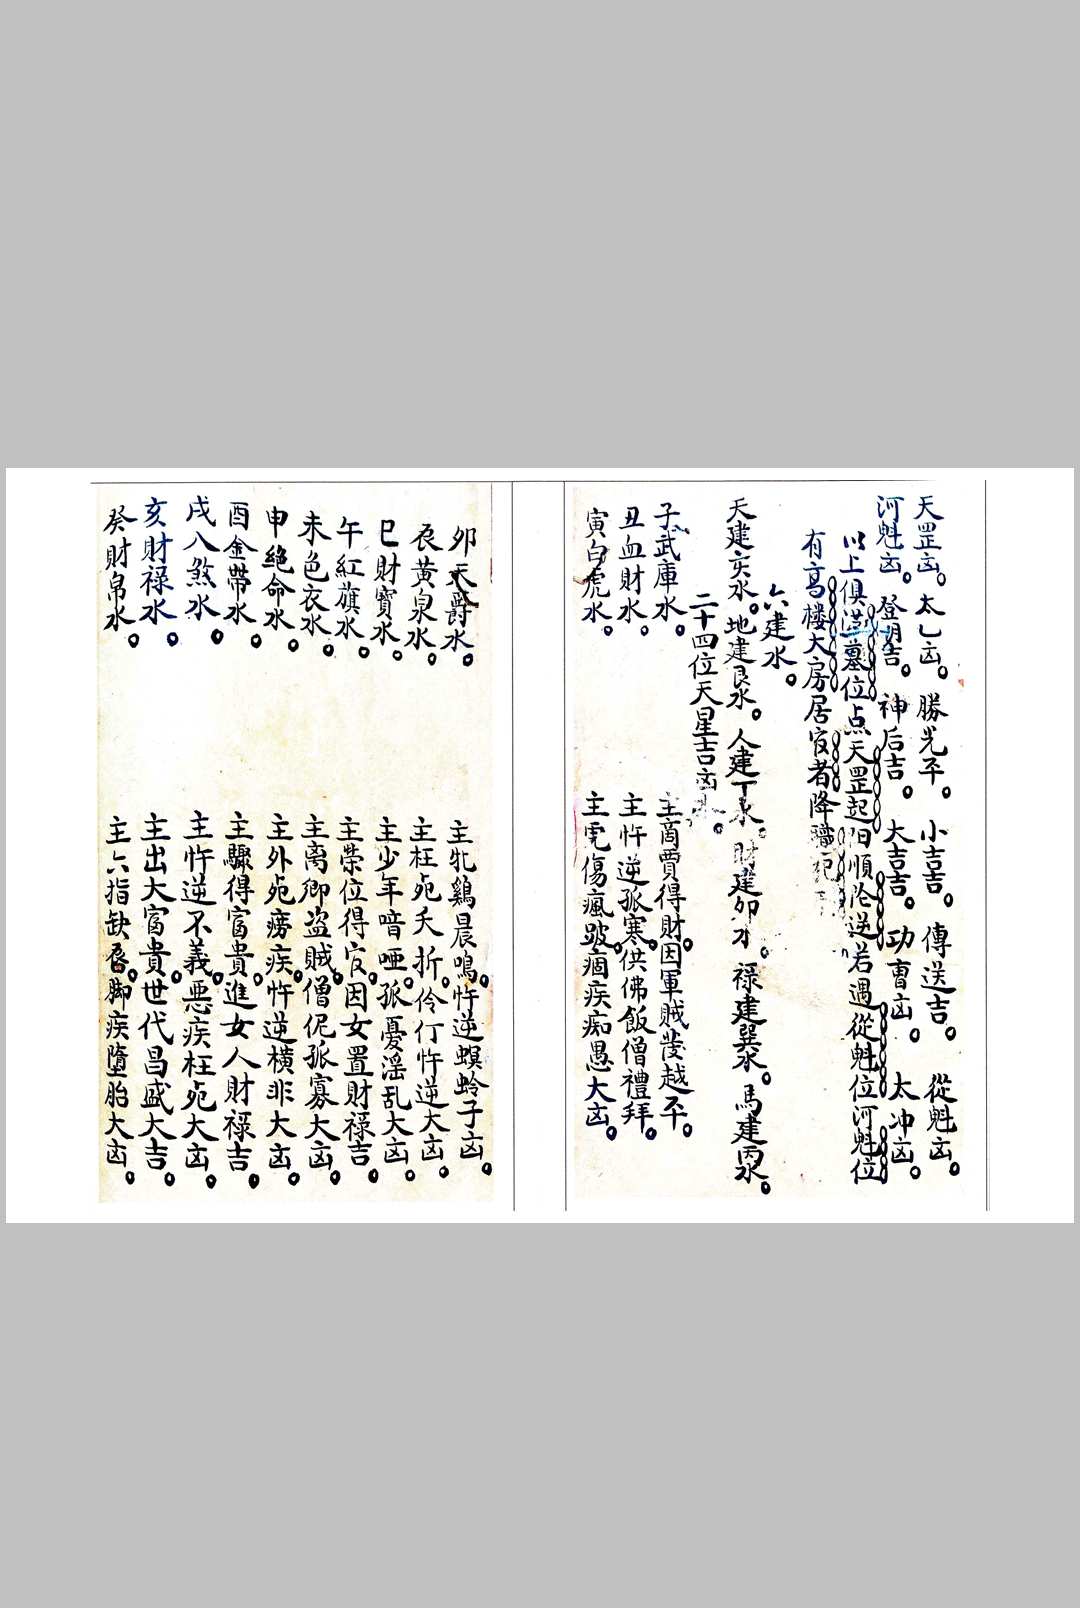 天罡凶。太乙凶。勝光平。小吉吉。傳送吉。從魁凶。
河魁凶。登明吉。神后吉。大吉吉。功曹凶。太冲凶。
以上俱從墓位点天罡起陽順陰逆若遇從魁位河魁位
有高楼大房居官者降職
六建水。
天建亥水。地建艮水。人建丁水。財建卯水。禄建巽水。馬建丙水。
二十四位天星吉凶水。
子武庫水。主商賈得財。因軍賊發越平。
丑血財水。主忤逆孤寒。供佛飯僧禮拜。
寅白虎水。主虎傷瘋跛。痼疾痴愚大凶。
卯天爵水。主牝鷄晨鳴。忤逆螟蛉子凶。
辰黄泉水。主枉死夭折。伶仃忤逆大凶。
巳財寶水。主少年喑哑。孤憂滛乱大凶。
午紅旗水。主荣位得官。因女置財禄吉。
未色衣水。主离卿盗賊。僧伲孤寡大凶。
申絶命水。主外死痨疾。忤逆横非大凶。
酉金帶水。主驟得富貴。進女人財禄吉。
戌八煞水。主忤逆不義。恶疾枉死大凶。
亥財禄水。主出大富貴。世代昌盛大吉。
癸財帛水。主六指缺唇。脚疾墮胎大凶。